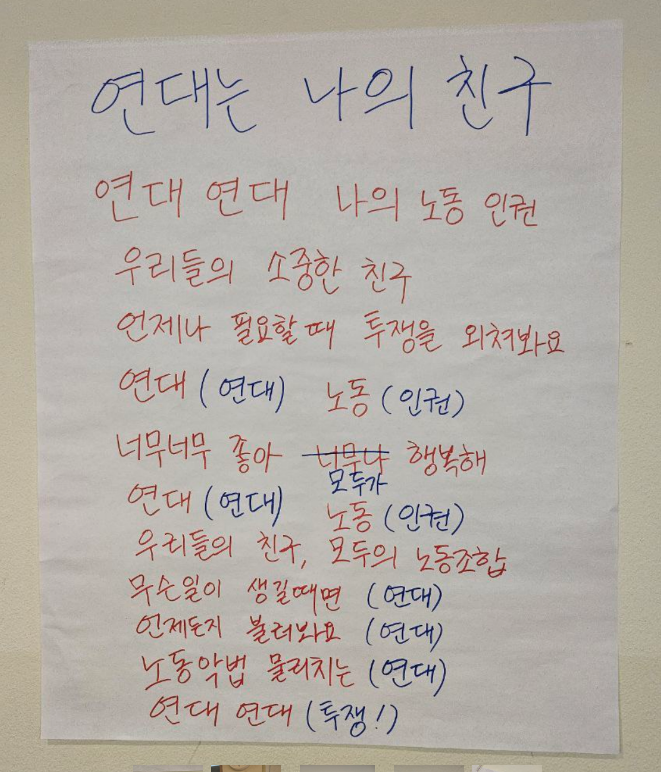 연대는 나의 친구
연대 연대 나의 노동 인권
우리들의 소중한 친구
언제나 필요할 때 투쟁을 외쳐봐요
연대 (연대) 노동 (인권)
너무너무 좋아 너무나 행복해
모두가
연대 (연대) 노동 (인권)
우리들의 친구, 모두의 노동조합
무슨일이 생길때면 (연대)
언제든지 불러봐요 (연대)
노동악법 물리치는 (연대)
연대 연대 (투쟁!)